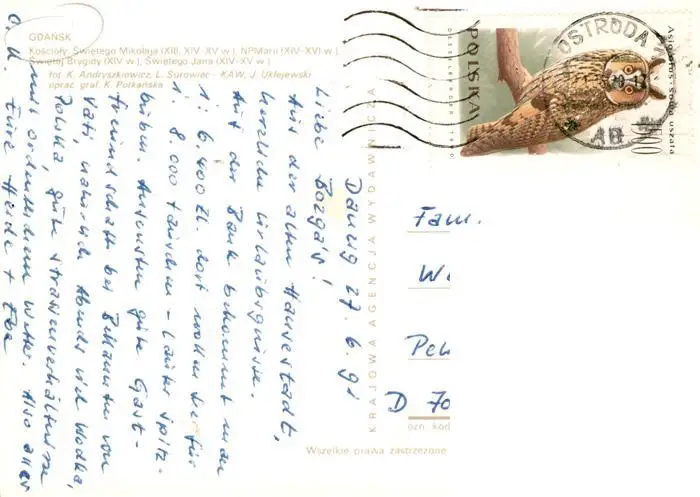 GDAŃSK
Kościoły: Świętego Mikołaja (XIII, XIV-XV w.), NPMarii (XIV-XVI w.),
Świętej Brygidy (XIV w.), Świętego Jana (XIV-XV w.)
fot. K. Andryszkiewicz, L. Surowiec - KAW, J. Uklejewski
oprac. graf. K. Potkańska
Danzig 27. 6. 91
Liebe
Aus der alten Hansestadt,
herzliche Urlaubsgrüsse.
Auf der Bank bekommt man
1: 6.400 Zl. dort wollen sie für
1: 8.000 tauschen - Lauter Spitz-
buben. Ansonsten gute Gast-
freundschaft bei Bekannten von
Vati, natürlich Abends viel Wodka,
Polska, gute Strassenverhältnisse
mit ordentlichem Wetter. Also alles
Eure Heide +
KRAJOWA AGENCJA WYDAWNICZA
POLSKA
Asio otus Sowa uszata
OSTRÓDA
Fam.
W
D 70
ozn. kod
Wszelkie prawa zastrzeżone